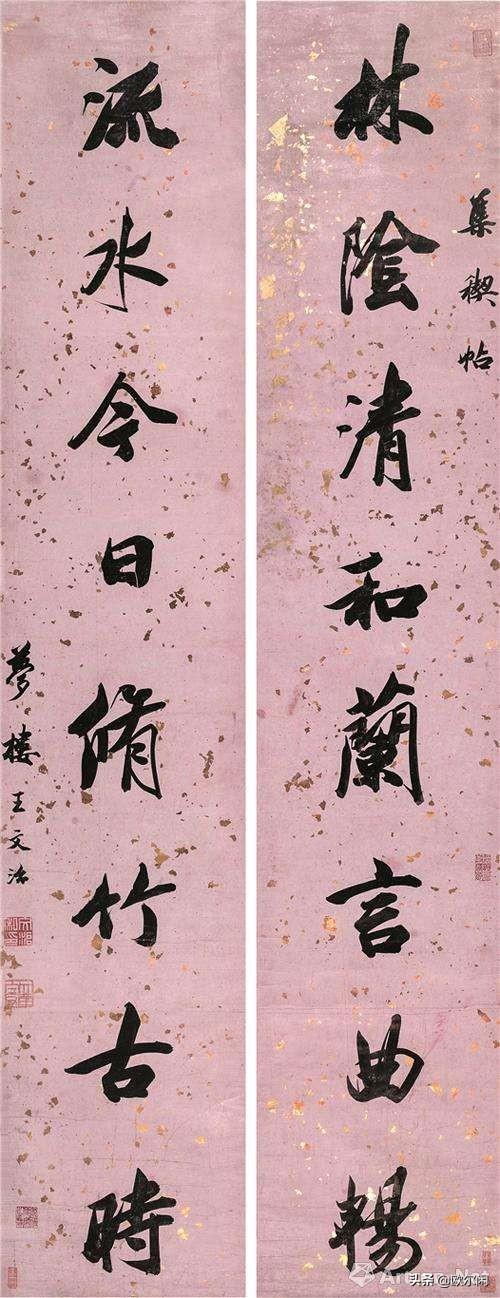 集禊帖
林陰清和蘭言曲暢
流水今日脩竹古時
夢樓王文治
Artron.Net
头条 @欧尔闲